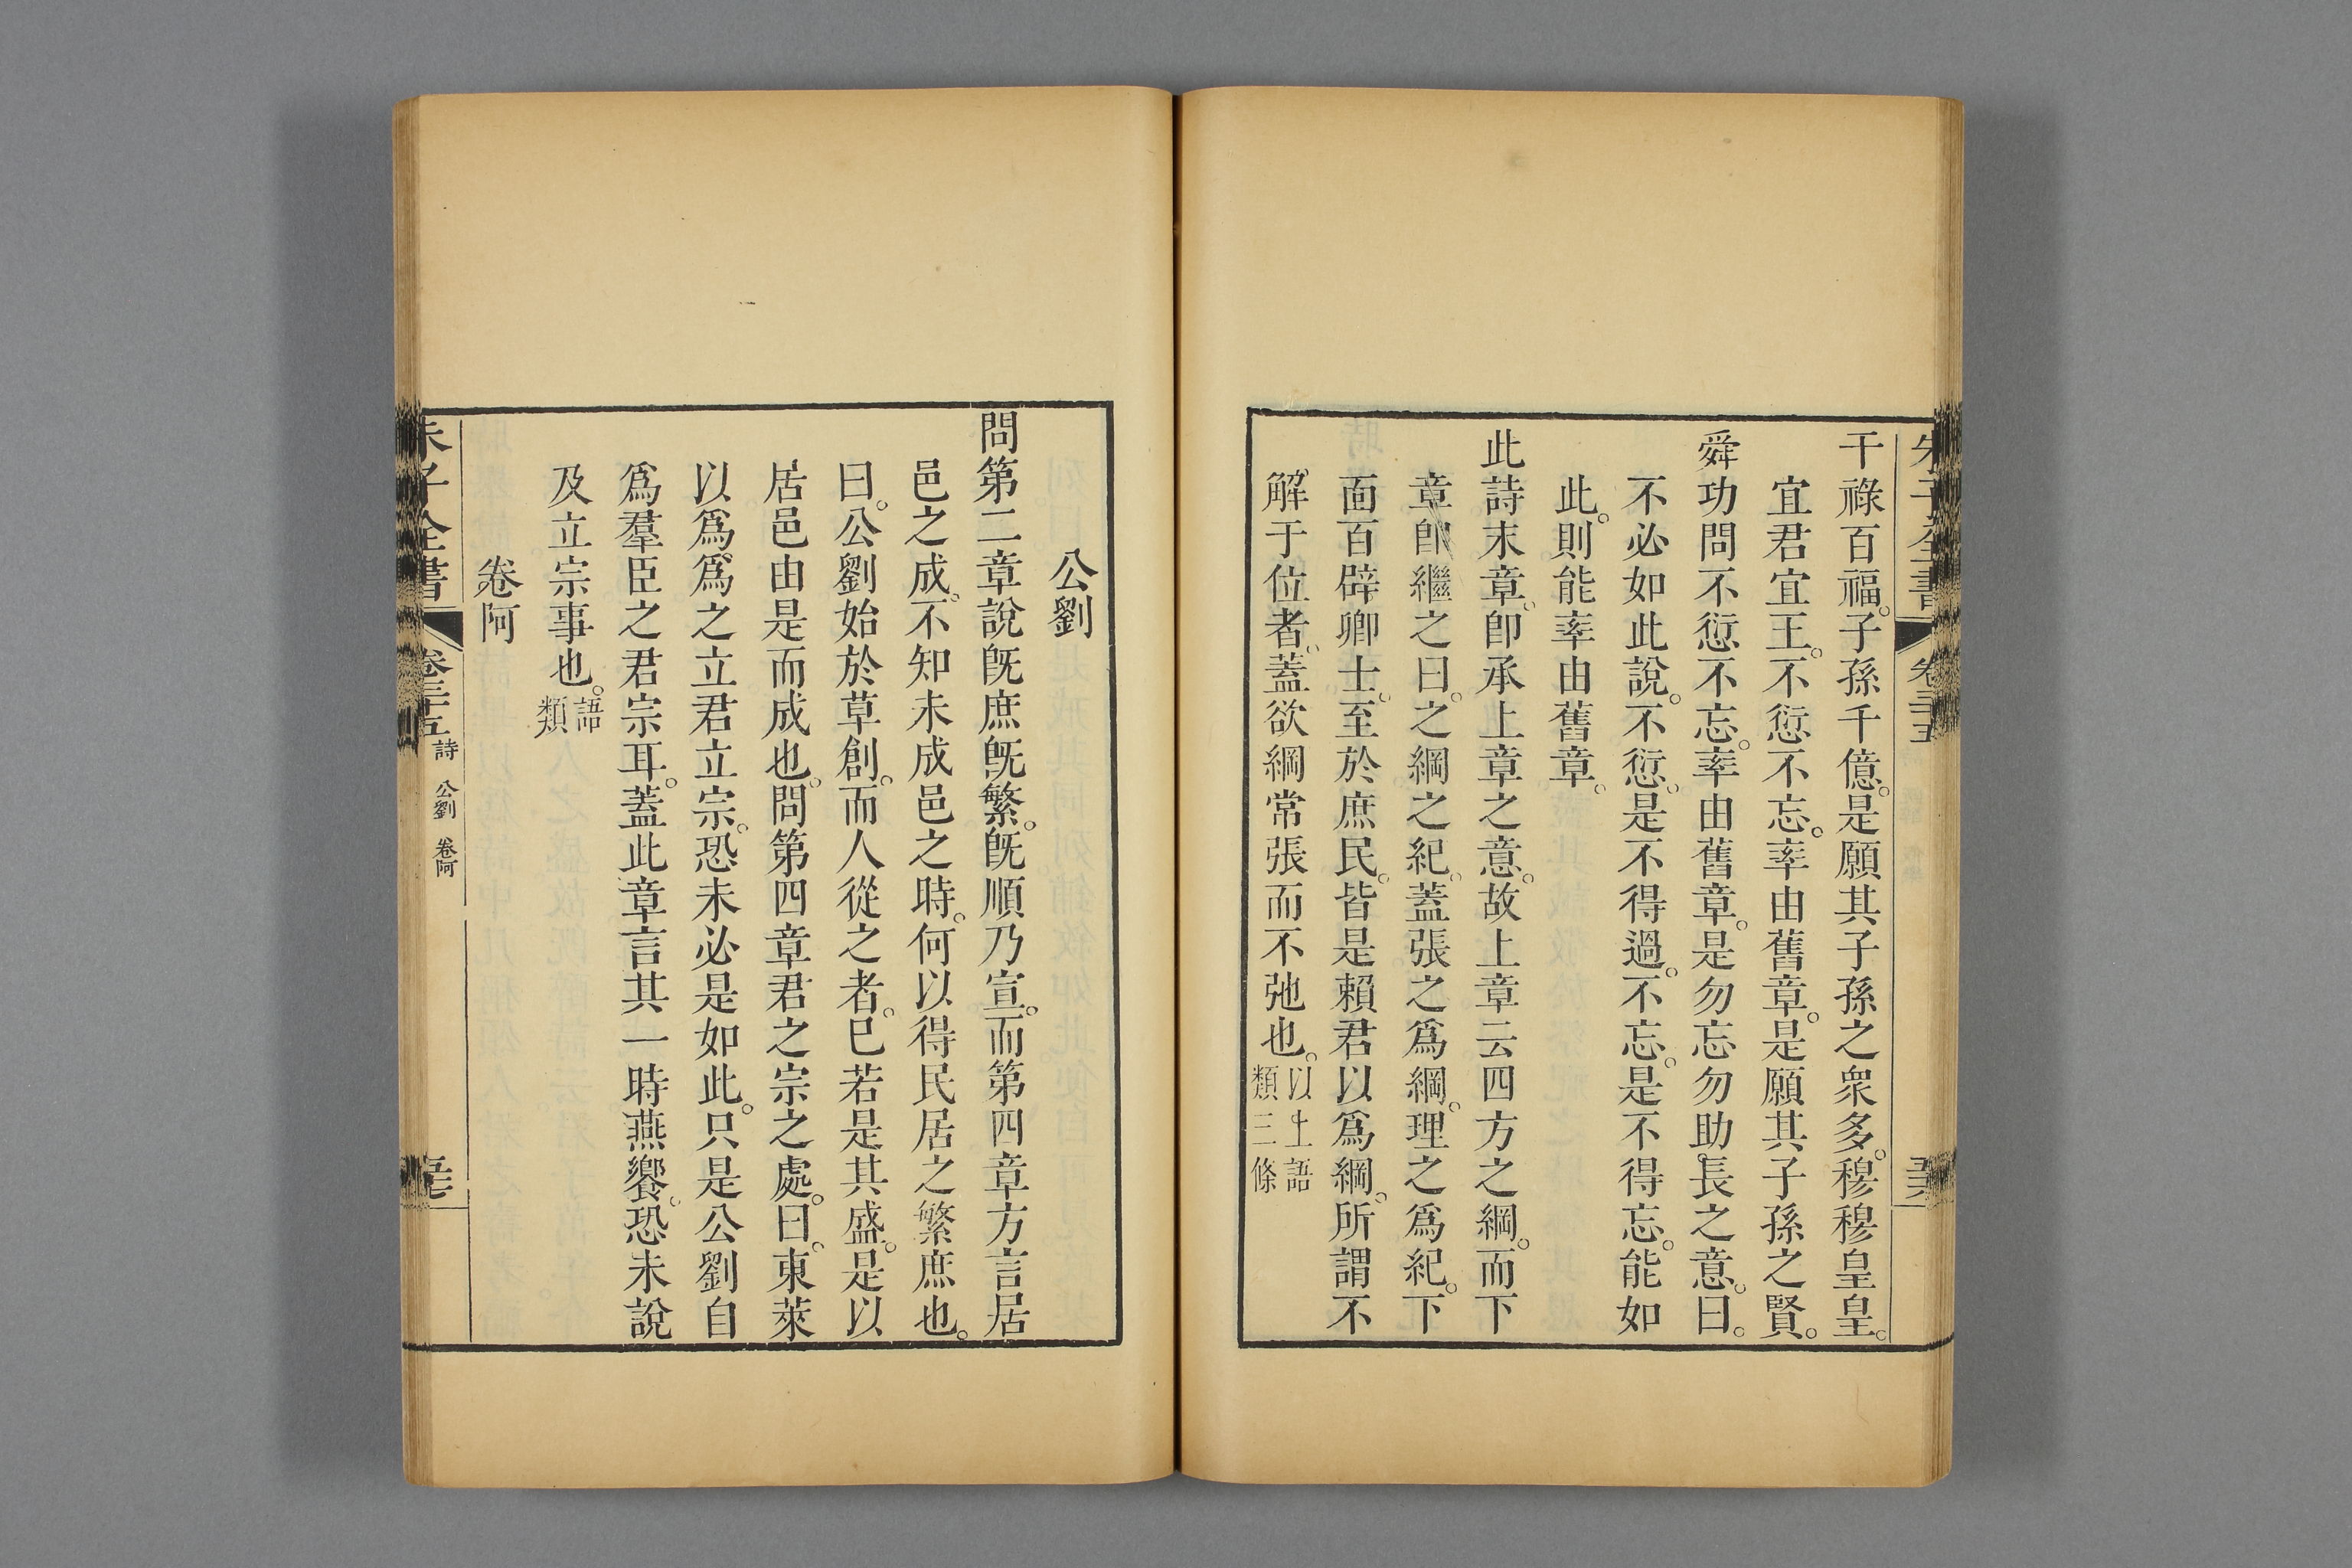 朱子全書 卷三十五
干祿百福。子孫千億。是願其子孫之衆多。穆穆皇皇。
宜君宜王。不愆不忘。率由舊章。是願其子孫之賢。
舜功問不愆不忘。率由舊章。是勿忘勿助長之意。曰。
不必如此說。不愆。是不得過。不忘。是不得忘。能如
此。則能率由舊章。
此詩末章。卽承上章之意。故上章云四方之綱。而下
章卽繼之曰。之綱之紀。蓋張之爲綱。理之爲紀。下
面百辟卿士。至於庶民。皆是賴君以爲綱。所謂不
解于位者。蓋欲綱常張而不弛也。以上語類三條
公劉
問第二章說旣庶旣繁。旣順乃宣。而第四章方言居
邑之成。不知未成邑之時。何以得民居之繁庶也。
曰。公劉始於草創。而人從之者。已若是其盛。是以
居邑由是而成也。問第四章君之宗之處。曰。東萊
以爲爲之立君立宗。恐未必是如此。只是公劉自
爲羣臣之君宗耳。蓋此章言其一時燕饗。恐未說
及立宗事也。語類
卷阿
朱子全書 卷三十五 詩 公劉 卷阿